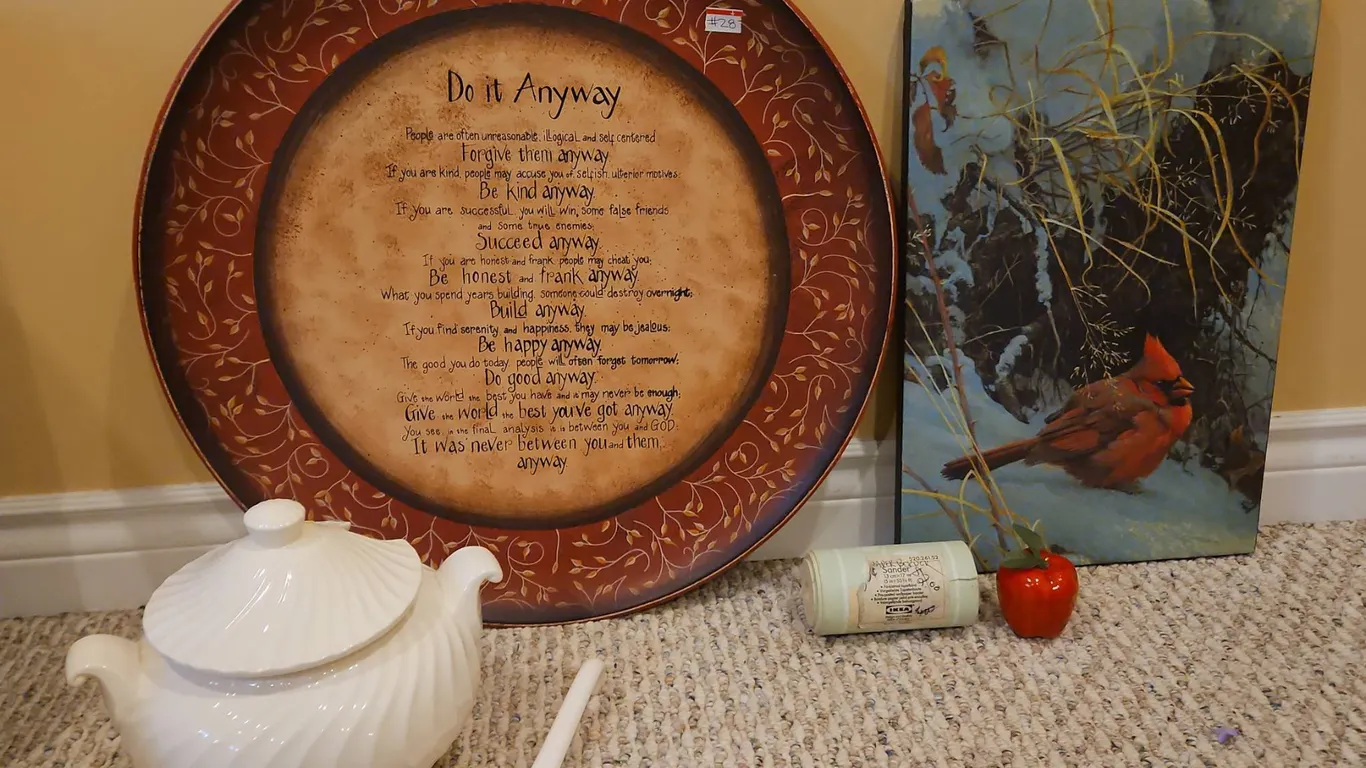 #28
Do it Anyway
People are often unreasonable, illogical and self centered
Forgive them anyway
If you are kind, people may accuse you of selfish, ulterior motives;
Be kind anyway.
If you are successful, you will win some false friends
and some true enemies;
Succeed anyway.
If you are honest and frank, people may cheat you;
Be honest and frank anyway.
What you spend years building, someone could destroy overnight;
Build anyway.
If you find serenity and happiness, they may be jealous;
Be happy anyway.
The good you do today, people will often forget tomorrow;
Do good anyway.
Give the world the best you have and it may never be enough;
Give the world the best you've got anyway.
You see, in the final analysis it is between you and GOD;
It was never between you and them,
anyway.
Sander
IKEA